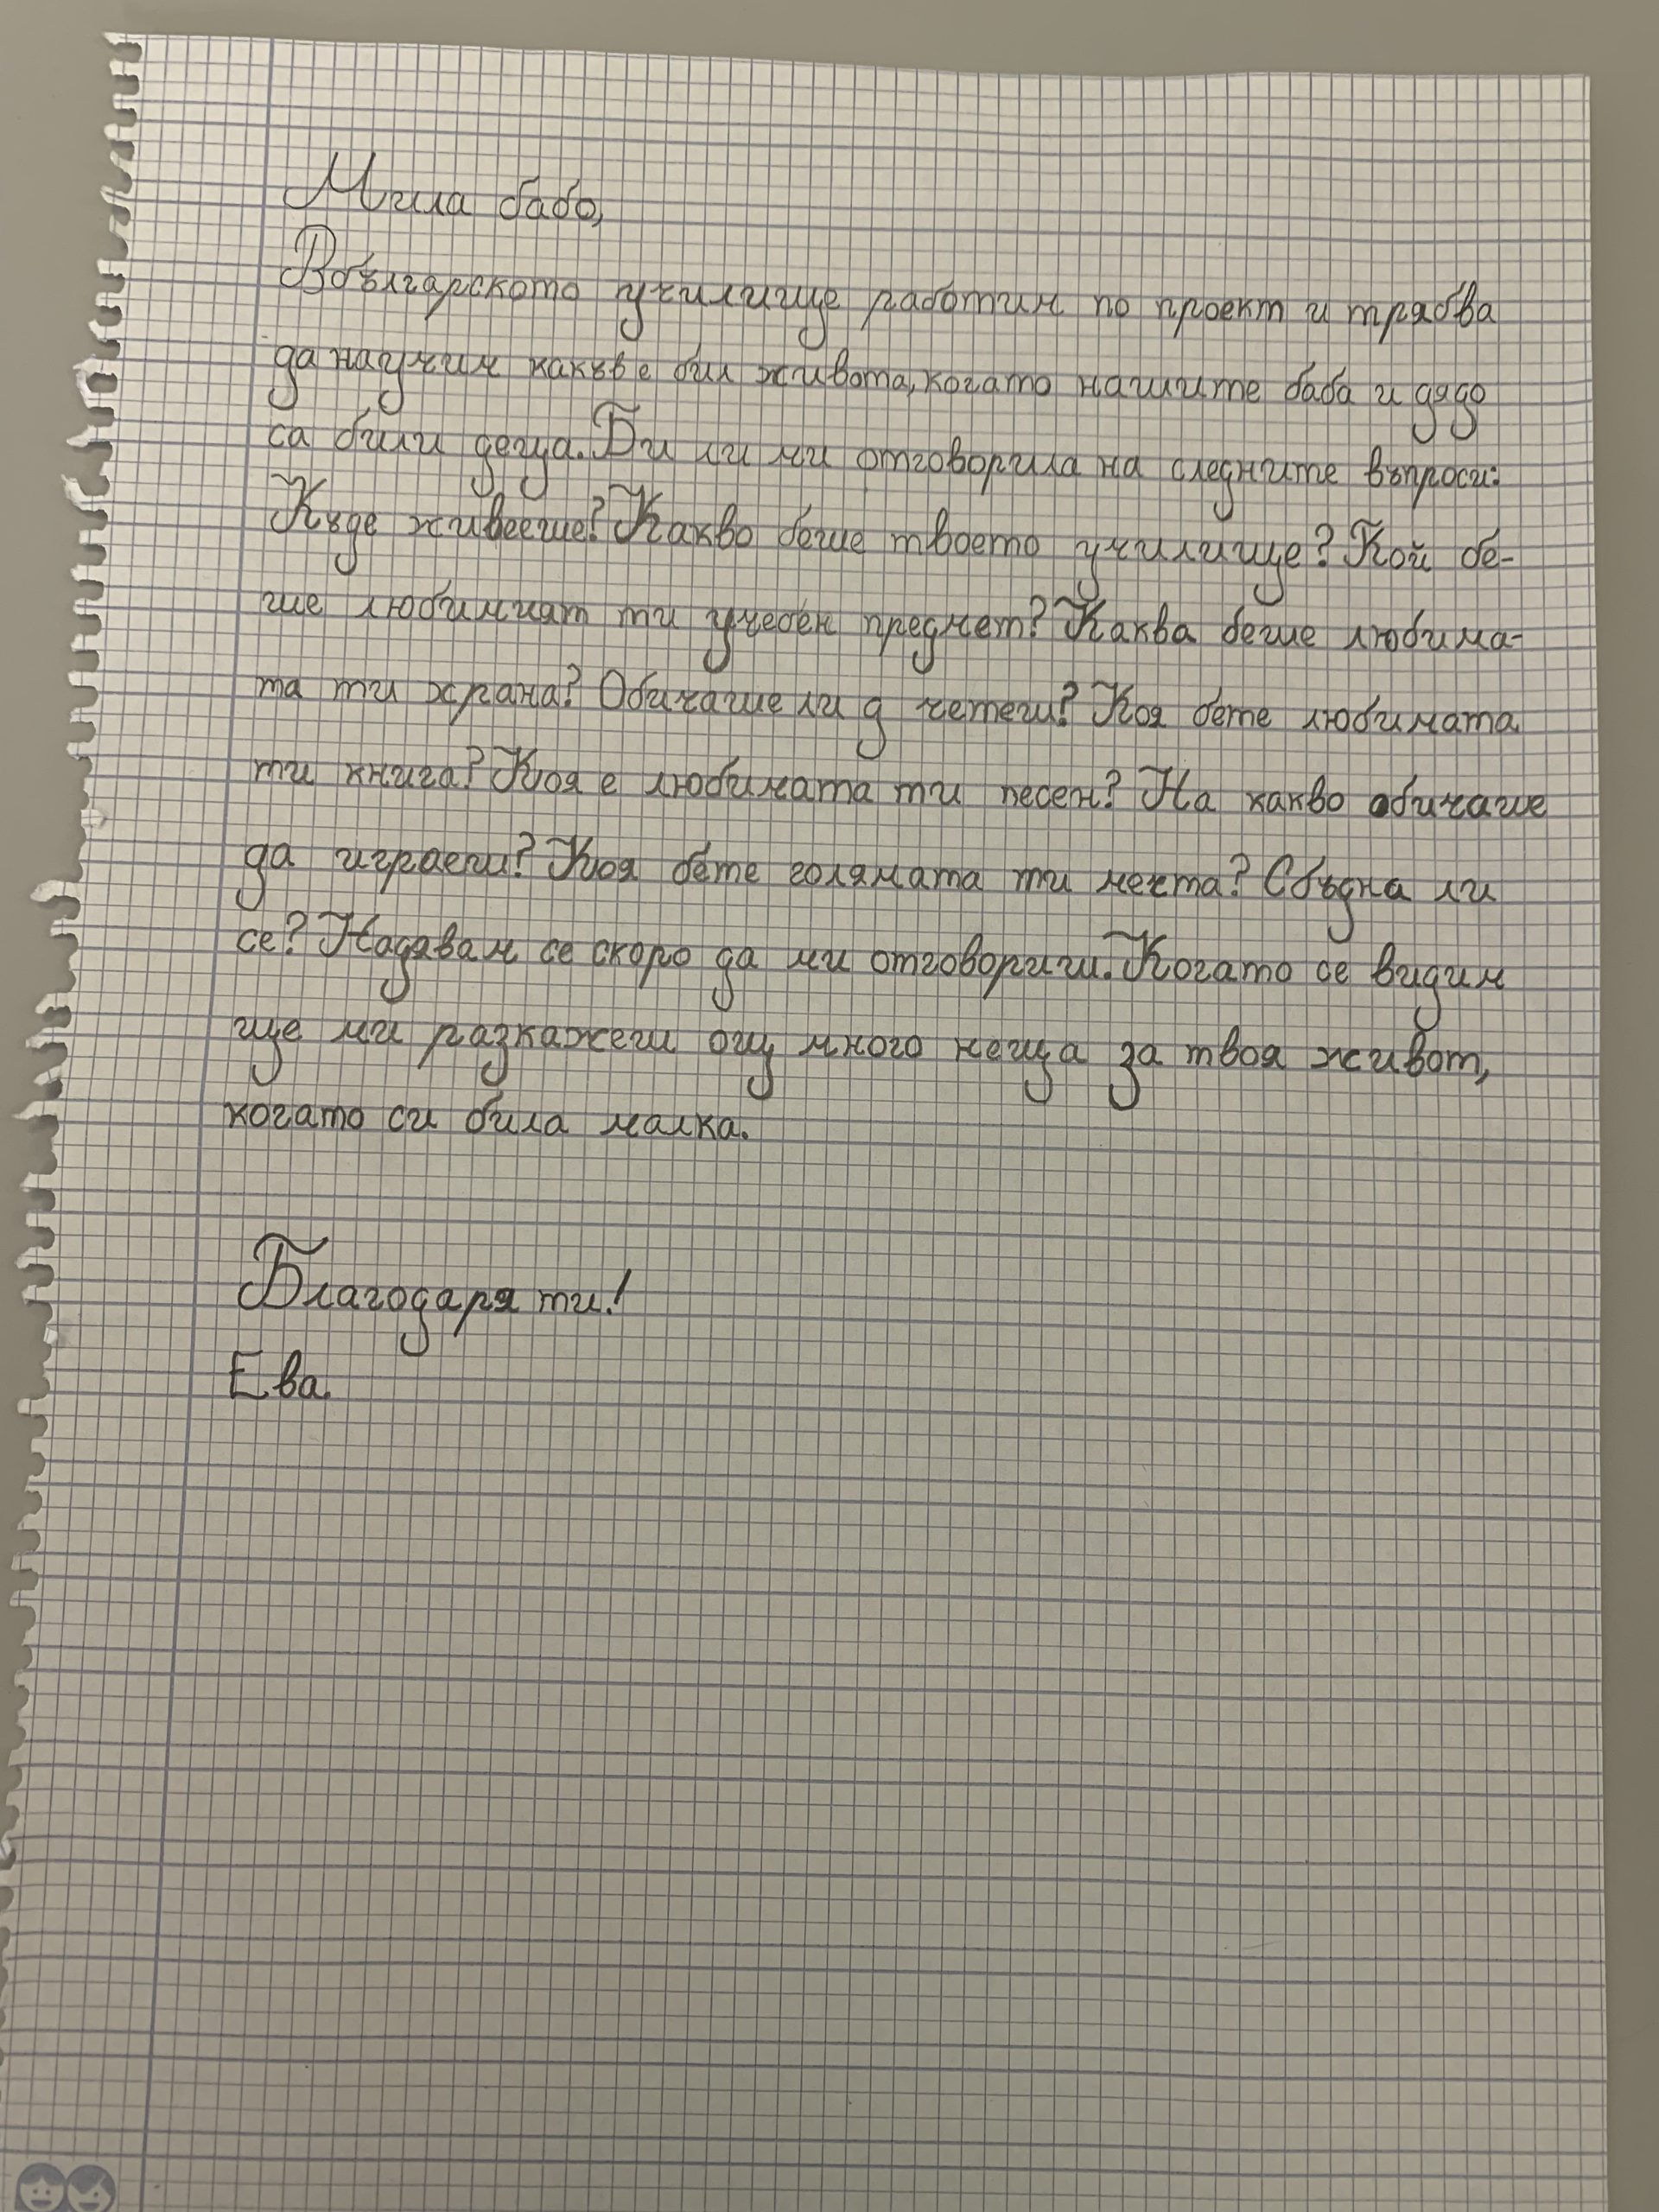 Мила бабо,
В българското училище работим по проект и трябва
да научим какъв е бил живота, когато нашите баба и дядо
са били деца. Би ли ми отговорила на следните въпроси:
Къде живееше? Какво беше твоето училище? Кой бе-
ше любимият ти учебен предмет? Каква беше любима-
та ти храна? Обичаше ли д четеш? Коя бете любимата
ти книга? Коя е любимата ти песен? На какво обичаше
да играеш? Коя бете голямата ти мечта? Сбъдна ли
се? Надявам се скоро да ми отговориш. Когато се видим
ще ми разкажеш ощ много неща за твоя живот,
когато си била малка.
Благодаря ти!
Ева